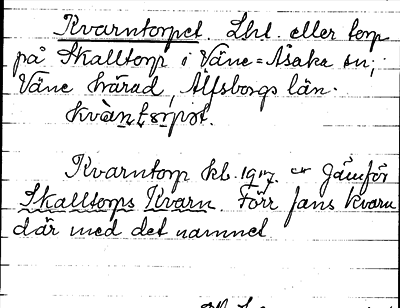 Kvarntorpet. Lht. eller torp
på Skalltorp i Väne=Åsaka sn,
Väne härad, Älfsborgs län.
kvàntorpət.
Kvarntorp kb. 1917. Jämför
Skalltorps Kvarn. Förr fans kvarn
där med det namnet